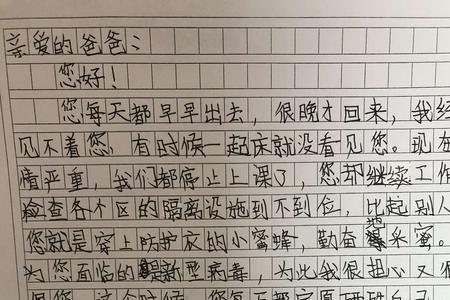 亲爱的爸爸：
您好！
您每天都早早出去，很晚才回来，我经
见不着您 有时候一起床就没看见您。现在
情严重，我们都停止上课了，您却继续工作
检查各个区的隔离设施到不到位，比起别人
您就是穿上防护衣的小蜜蜂，勤奋地采蜜。
为您面临的是新型病毒，为此我很担心又很